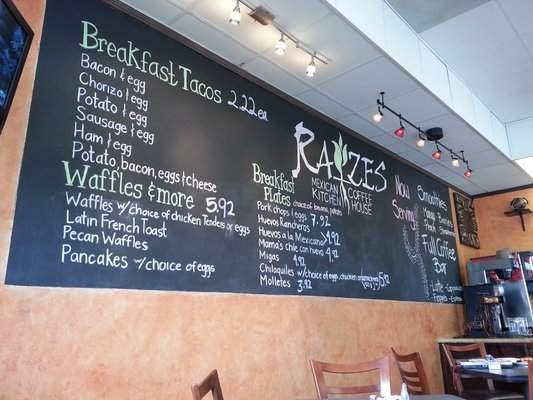 Breakfast Tacos 2.22 ea
Bacon & egg
Chorizo & egg
Potato & egg
Sausage & egg
Ham & egg
Potato, bacon, eggs & cheese
Waffles & more 5.92
Waffles w/choice of chicken Tenders or eggs
Latin French Toast
Pecan Waffles
Pancakes w/choice of eggs
RAIZES
MEXICAN KITCHEN
COFFEE HOUSE
Breakfast Plates choice of beans, potato
Pork chops & eggs 7.92
Huevos Rancheros
Huevos a la Mexicana 4.92
Mama's chile con huevo 4.92
Migas 4.92
Chilaquiles w/choice of eggs, chicken 5.92
Molletes 3.92
Now Serving
Smoothies
Full Coffee Bar